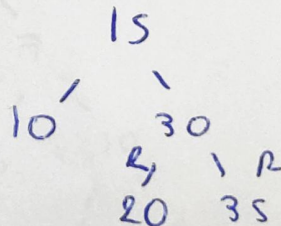 15
10 30
R R
20 35